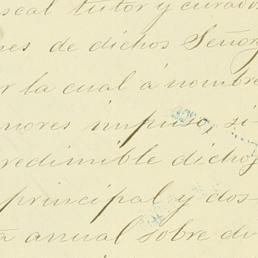 scal tutor y curado
nes de dichos Señor
r la cual á nombre
nores impuso, si
redimible dichos
principal y dos
anual sobre du